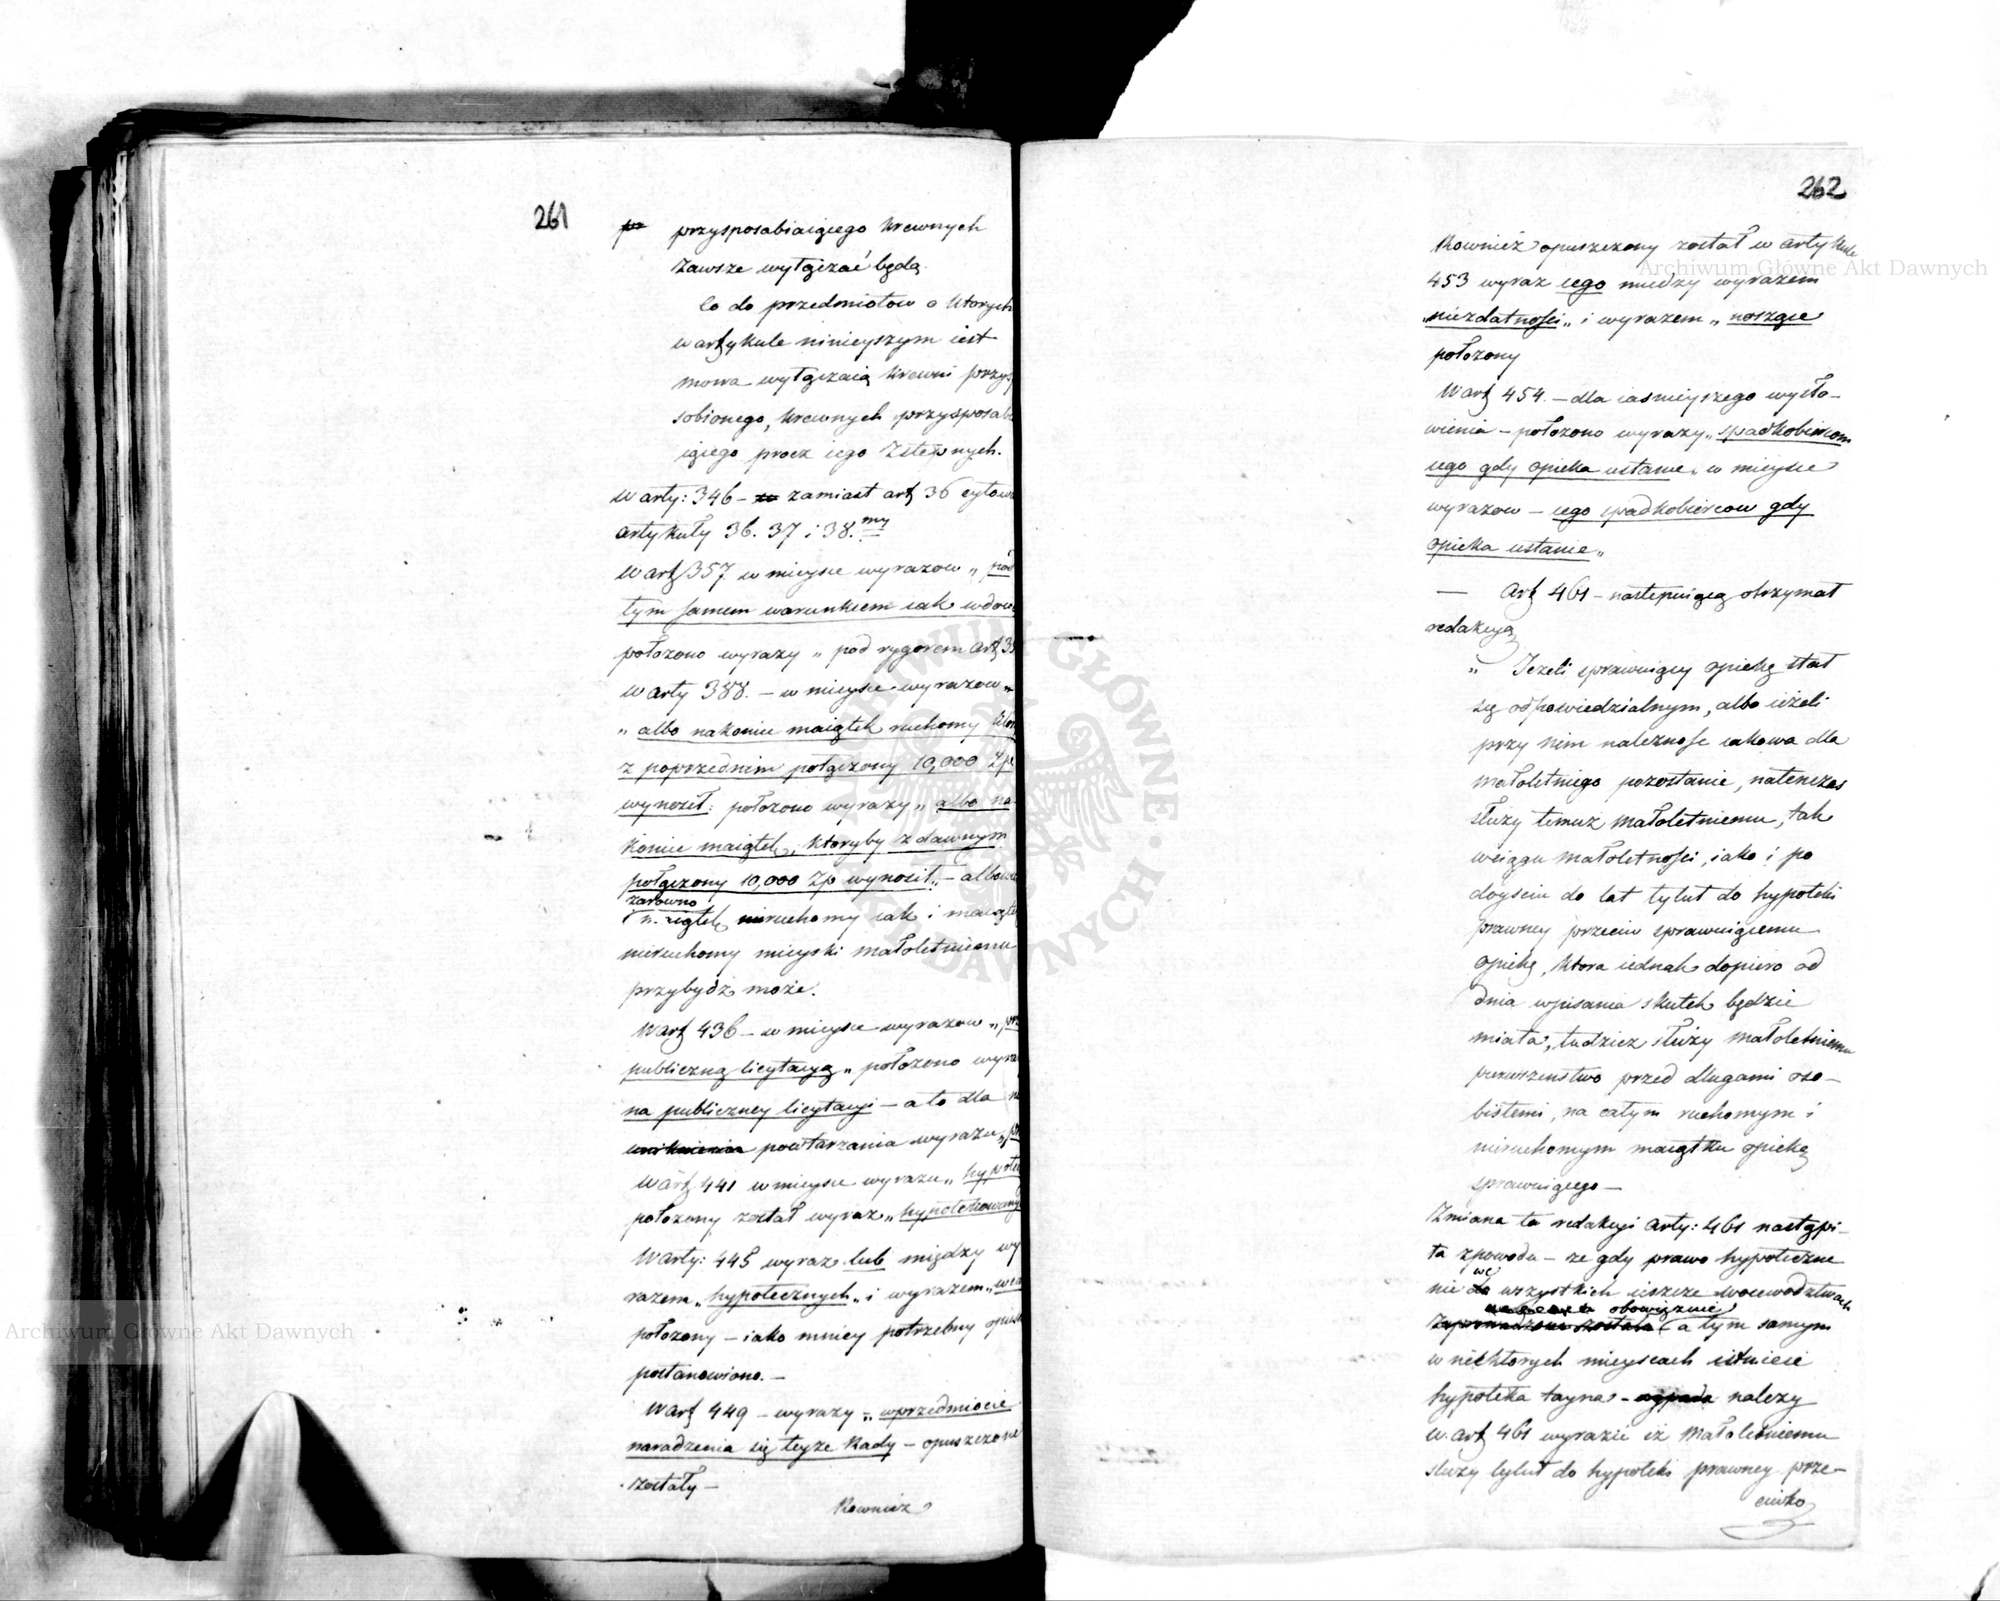 261
przysposabiaiącego krewnych
zawsze wyłączać będą.
Co do przedmiotow o ktorych
w artykule ninieyszym iest
mowa wyłączaią krewni przys
sobionego, krewnych przysposab
iącego procz iego Zstępnych.
W arty: 346 – zamiast art 36 cytow
artykuły 36. 37 i 38.my
W art 357 w mieysce wyrazow „ pod
tym samem warunkiem iak wdow
położono wyrazy „ pod rygorem art 35
W arty 388. – w mieysce wyrazow „
„ albo nakoniec maiątek ruchomy któr
z poprzednim połączony 10,000 Zp
wynosił: położono wyrazy „ albo na
koniec maiątek, ktoryby z dawnym
połączony 10,000 Zp wynosił „ – albow
zarowno
maiątek ruchomy iak i maiąte
nieruchomy mieyski małoletniemu
przybydź może.
W art 436 – w mieysce wyrazow „ prz
publiczną licytacyą „ położono wyra
na publiczney licytacyi – a to dla
uniknienia powtarzania wyrazu „ prz
W art 441 w mieysce wyrazu „ hypotec
położony został wyraz „ hypotekowany
W arty: 445 wyraz lub między wy
razem „ hypotecznych „ i wyrazem „
położony – iako mniey potrzebny opuś
postanowiono. –
W art 449 – wyrazy „ w przedmiocie
naradzenia się teyze Rady – opuszczone
zostały –
Rownież
262
Rownież opuszczony został w artykule
453 wyraz iego między wyrazem
„niezdatności „ i wyrazem „ noszące
położony
W art 454. – dla iasnieyszego wysło-
wienia – położono wyrazy „ spadkobiercom
iego gdy opieka ustanie „ w mieysce
wyrazow – iego spadkobiercow gdy
opieka ustanie „
— Art 461 – następuiącą otrzymał
redakcyą
„ Jeżeli sprawuiący opiekę stał
się odpowiedzialnym, albo ieżeli
przy nim należność iakowa dla
małoletniego pozostanie, natenczas
służy temuz małoletniemu, tak
wciągu małoletności, iako i po
doyściu do lat tytuł do hypoteki
prawney przeciw sprawuiącemu
opiekę, ktora iednak dopiero od
dnia wpisania skutek będzie
miała, tudziez służy małoletniemu
pierwszenstwo przed długami oso-
bistemi, na całym ruchomym i
nieruchomym maiątku opiekę
sprawuiącego –
Zmiana ta redakcyi arty: 461 nastąpi-
ła zpowodu – ze gdy prawo hypoteczne
nie we wszystkich ieszcze woiewodztwach
obowiązuie
zaprowadzone zostało (a tym samym
w niektorych mieyscach istnieie
hypoteka tayna – wypada nalezy
w art 461 wyrazić iż Małoletniemu
słuzy tytuł do hypoteki prawney prze-
ciwko
Archiwum Główne Akt Dawnych
Archiwum Główne Akt Dawnych
ARCHIWUM GŁÓWNE AKT DAWNYCH